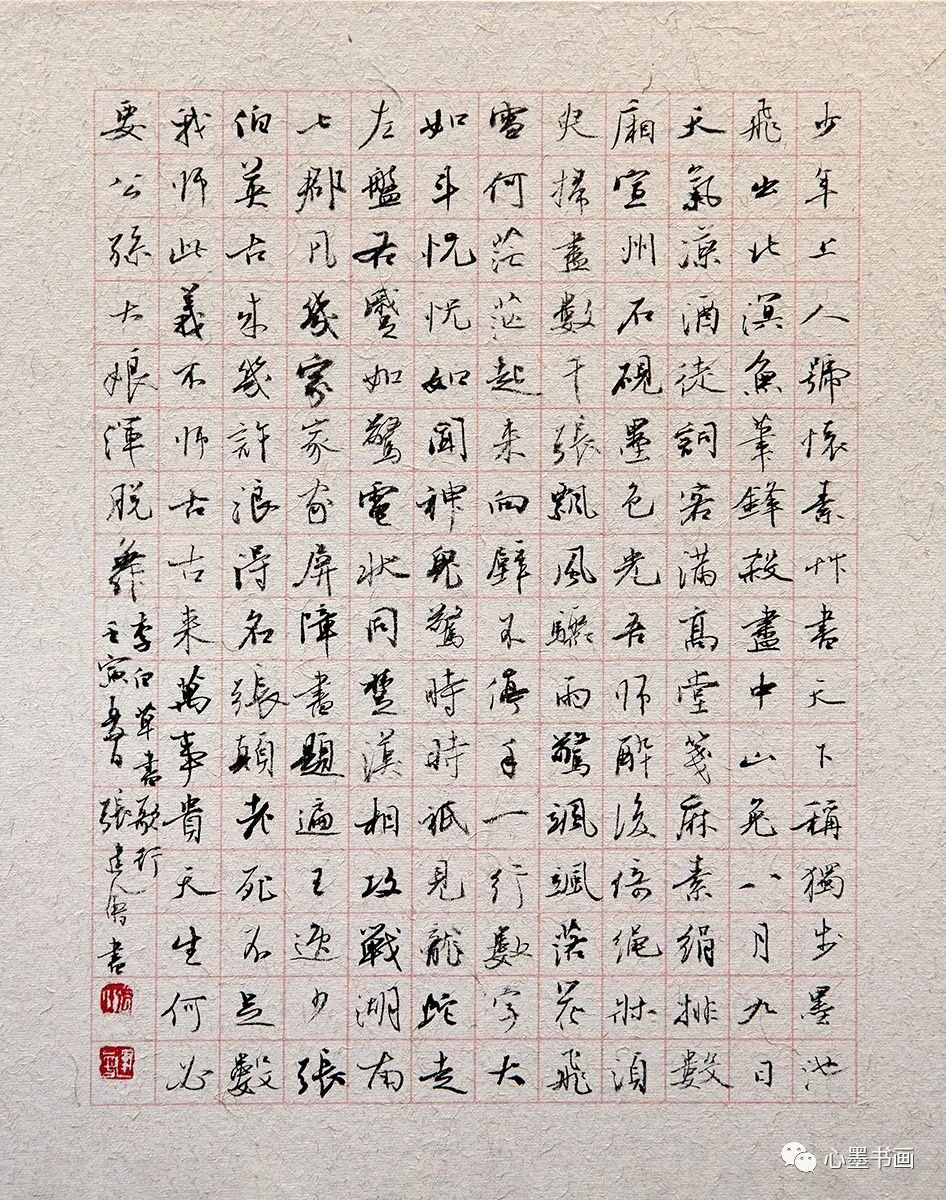 少年上人號懷素艸書天下稱獨步墨池
飛出北溟魚筆鋒殺盡中山兔八月九日
天氣涼酒徒詞客滿高堂箋麻素絹排數
廂宣州石硯墨色光吾師醉後倚繩床須
臾掃盡數千張飄風驟雨驚颯颯落花飛
雪何茫茫起来向壁不停手一行數字大
如斗怳怳如聞神鬼驚時時祇見龍蛇走
左盤右蹙如驚電狀同楚漢相攻戰湖南
七郡凡幾家家家屏障書題遍王逸少張
伯英古来幾許浪得名張顛老死不足數
我師此義不師古古来萬事貴天生何必
要公孫大娘渾脫舞
李白草書歌行
壬寅春日張建書
心墨书画